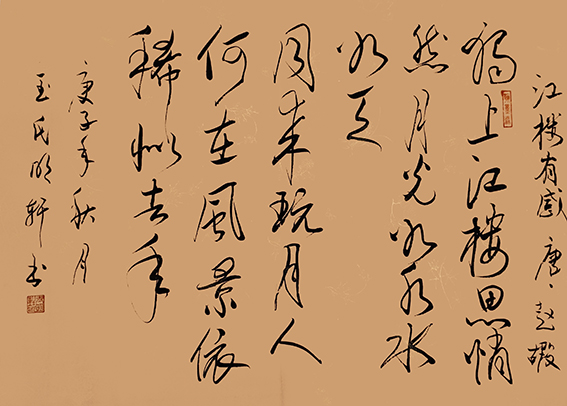 江樓有感 唐、赵嘏
獨上江樓思悄
然月光如水水
如天
同来玩月人
何在風景依
稀似去年
庚子年秋月
玉氏明轩书